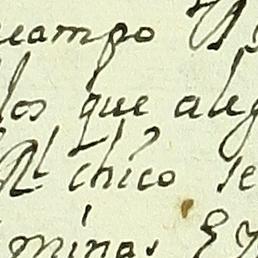 campo
los que aleg
Rl chico se
minas Ey